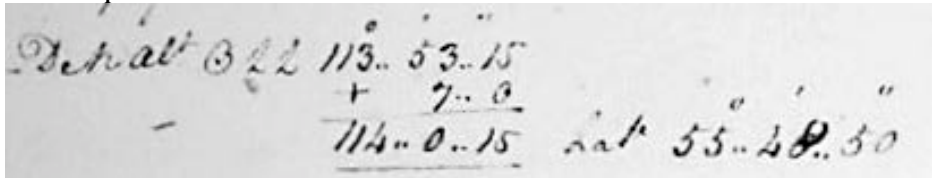 alt ⊙ L L 113°.. 53'.. 15"
+ 7.. 0
114.. 0.. 15 Lat 55°.. 48'.. 50"